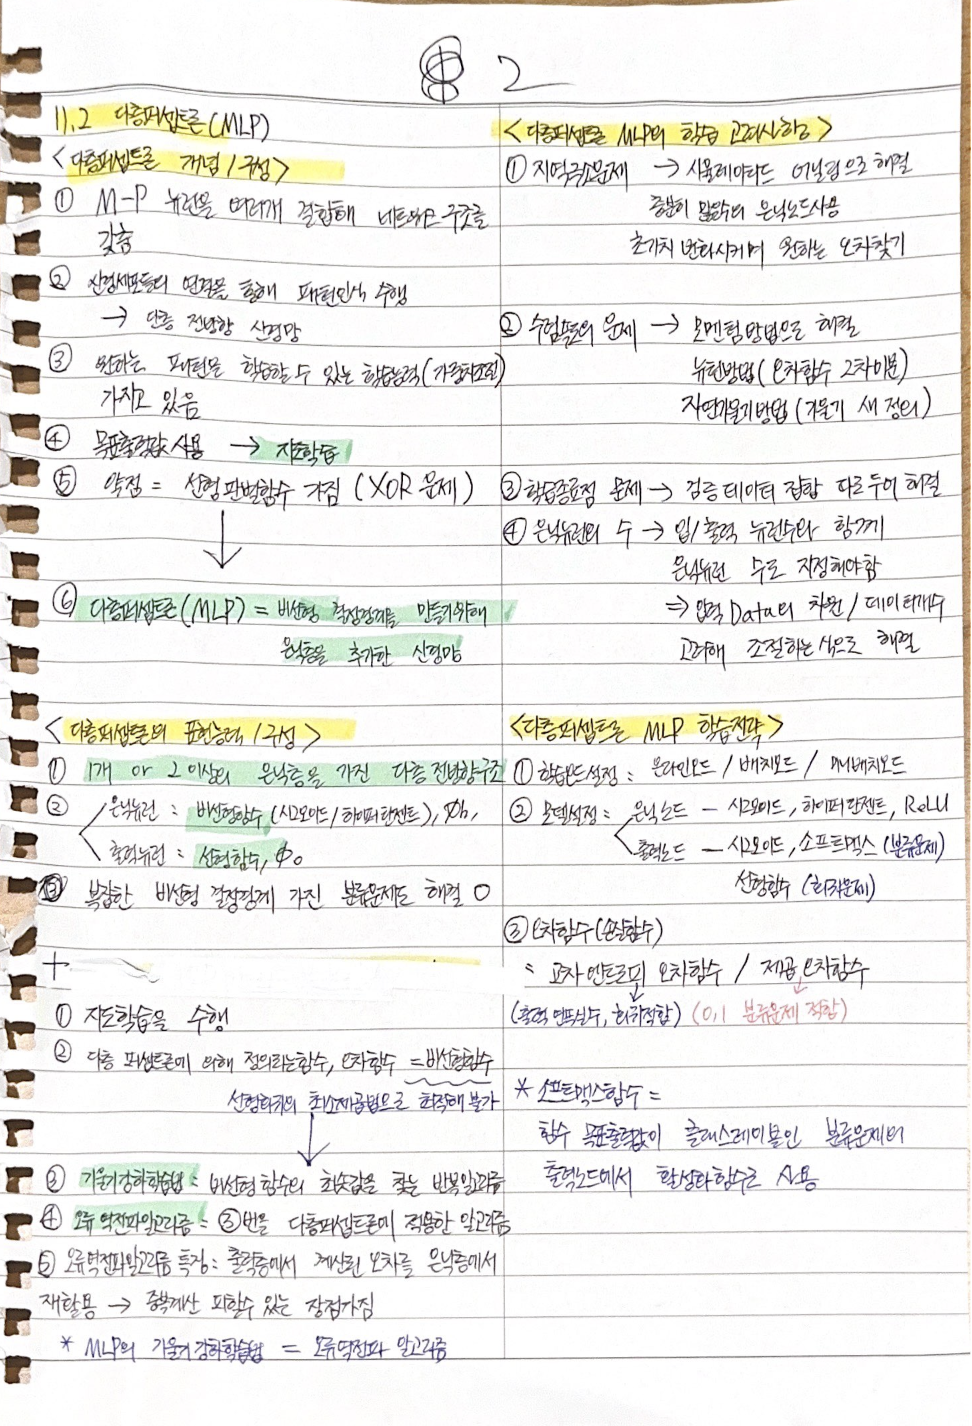 2
11.2 다층퍼셉트론(MLP)
<다층퍼셉트론 개념/구성>
① M-P 뉴런을 여러개 결합해 네트워크 구조를
갖춤
② 신경세포들의 연결을 통해 패턴인식 수행
→ 단층 전방향 신경망
③ 원하는 패턴을 학습할 수 있는 학습능력(가중치조절)
가지고 있음
④ 목표출력값 사용 → 지도학습
⑤ 약점 = 선형 판별함수 가짐 (XOR 문제)
⑥ 다층퍼셉트론(MLP) = 비선형 결정경계를 만들기위해
은닉층을 추가한 신경망
<다층퍼셉트론의 표현능력/구성>
① 1개 or 2이상의 은닉층을 가진 다층 전방향구조
② 은닉뉴런 : 비선형함수(시그모이드/하이퍼탄젠트), Φh,
출력뉴런 : 선형함수, Φo
③ 복잡한 비선형 결정경계 가진 분류문제도 해결 O
+
① 지도학습을 수행
② 다층 퍼셉트론에 의해 정의되는함수, 오차함수 = 비선형함수
선형회귀의 최소제곱법으로 최적해 불가
↓
③ 기울기강하학습법 : 비선형 함수의 최솟값을 찾는 반복알고리즘
④ 오류 역전파알고리즘 = ③번을 다층퍼셉트론에 적용한 알고리즘
⑤ 오류역전파알고리즘 특징 : 출력층에서 계산된 오차를 은닉층에서
재활용 → 중복계산 피할수 있는 장점가짐
* MLP의 기울기강하학습법 = 오류역전파 알고리즘
<다층퍼셉트론 MLP의 학습 고려사항>
① 지역극소문제 → 시뮬레이티드 어닐링으로 해결
충분히 많은수의 은닉노드사용
초기치 변화시키며 원하는 오차찾기
② 수렴속도의 문제 → 모멘텀방법으로 해결
뉴턴방법(오차함수 2차미분)
자연기울기방법(기울기 새 정의)
③ 학습종료점 문제 → 검증데이터 집합 따로두어 해결
④ 은닉뉴런의 수 → 입/출력 뉴런수와 함께
은닉뉴런 수도 지정해야함
⇒ 입력 Data의 차원/데이터개수
고려해 조절하는식으로 해결
<다층퍼셉트론 MLP 학습전략>
① 학습모드설정 : 온라인모드 / 배치모드 / 미니배치모드
② 모델설정 = 은닉노드 - 시그모이드, 하이퍼탄젠트, ReLU
출력노드 - 시그모이드, 소프트맥스 (분류문제)
선형함수 (회귀문제)
③ 오차함수(손실함수)
: 교차엔트로피 오차함수 / 제곱오차함수
(출력 연속실수, 회귀적합) (0,1 분류문제 적합)
* 소프트맥스함수 =
함수 목표출력값이 클래스레이블인 분류문제의
출력노드에서 활성화함수로 사용